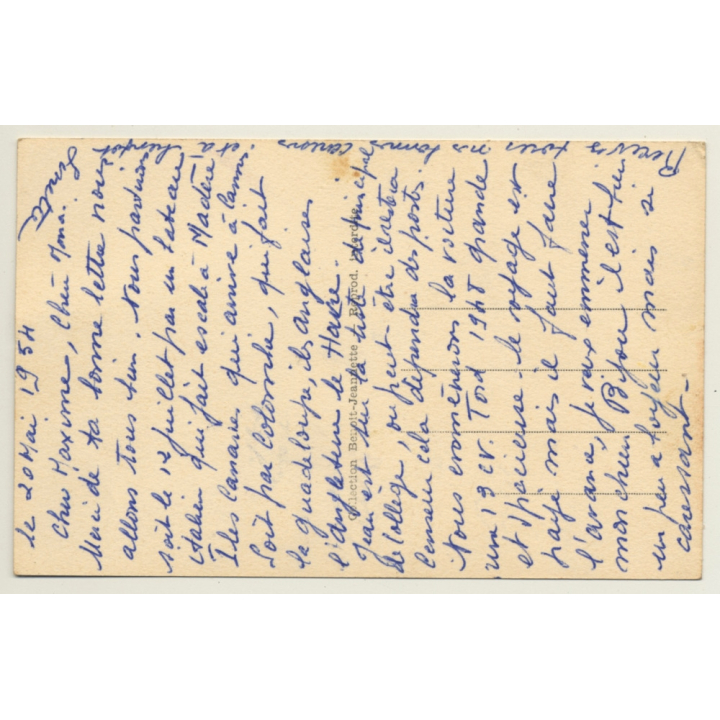 le 20 Mai 1954
Cher Maxime, Chère Mma.
Merci de ta bonne lettre nous
allons tous bien. Nous partirons
soit le 12 juillet par un bateau
italien qui fait escale à Madère,
Iles Canaries qui arrive à
Soit par Colombie, qui fait
la guadeloupe, iles anglaises
l'angleterre le Havre.
Jean est sur la liste de principal
de Collège, ou peut être il restera
Censeur cela dépendra des postes.
Nous emmènerons la voiture
une 13 cv. Ford 1948 grande
et spacieuse. le voyage est
payé mais il faut faire
l'avance, je veux emmener
mon chien Bijou il est bien
un peu aboyeur mais si
caressant.
Recevez tous nos bonnes et à bientôt
Collection Benoit-Jeannette Reprod.